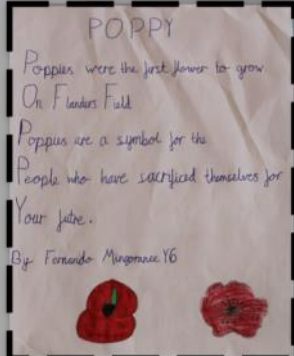 POPPY
Poppies were the first flower to grow
On Flanders Field
Poppies are a symbol for the
People who have sacrificed themselves for
Your futre.
By Fernando Y6